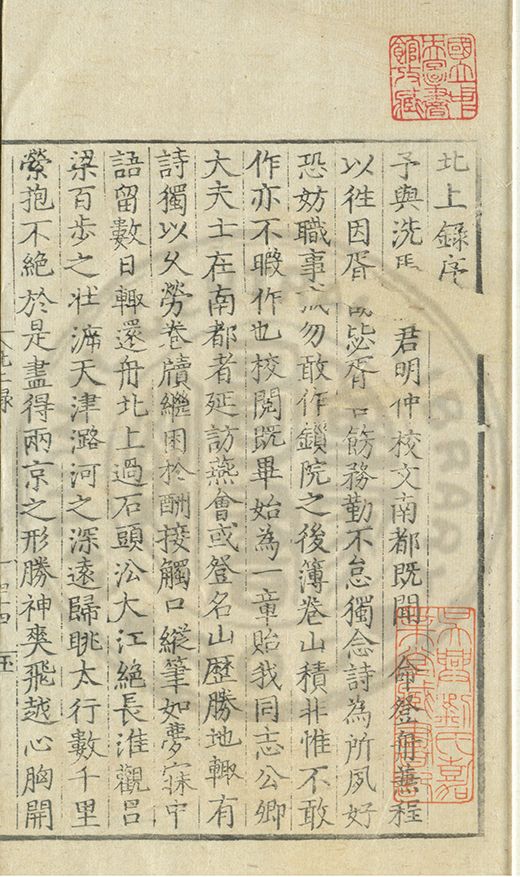 北上錄序
予與洗馬 君明仲校文南都既聞 命登舟兼程
以往因胥戒毖胥口飭務勤不怠獨念詩為所夙好
恐妨職事戒勿敢作鎖院之後簿卷山積非惟不敢
作亦不暇作也校閱既畢始為一章貽我同志公卿
大夫士在南都者延訪燕會或登名山歷勝地輒有
詩獨以久勞卷牘繼困於酬接觸口縱筆如夢寐中
語留數日輒還舟北上過石頭沿大江絕長淮觀呂
梁百步之壯泝天津潞河之深遠歸眺太行數千里
縈抱不絕於是盡得兩京之形勝神爽飛越心胸開
國立中央圖書館收藏
吳興劉氏嘉業堂藏書印